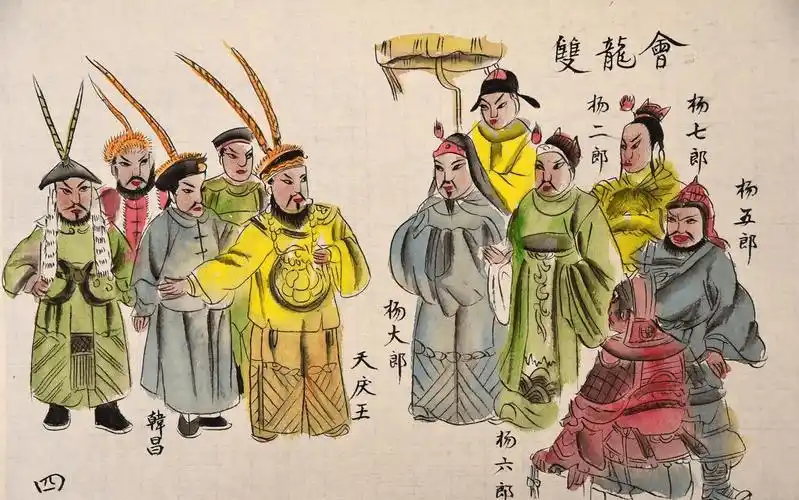 雙龍會
杨二郎
杨七郎
杨五郎
杨大郎
天庆王
韓昌
杨六郎
四